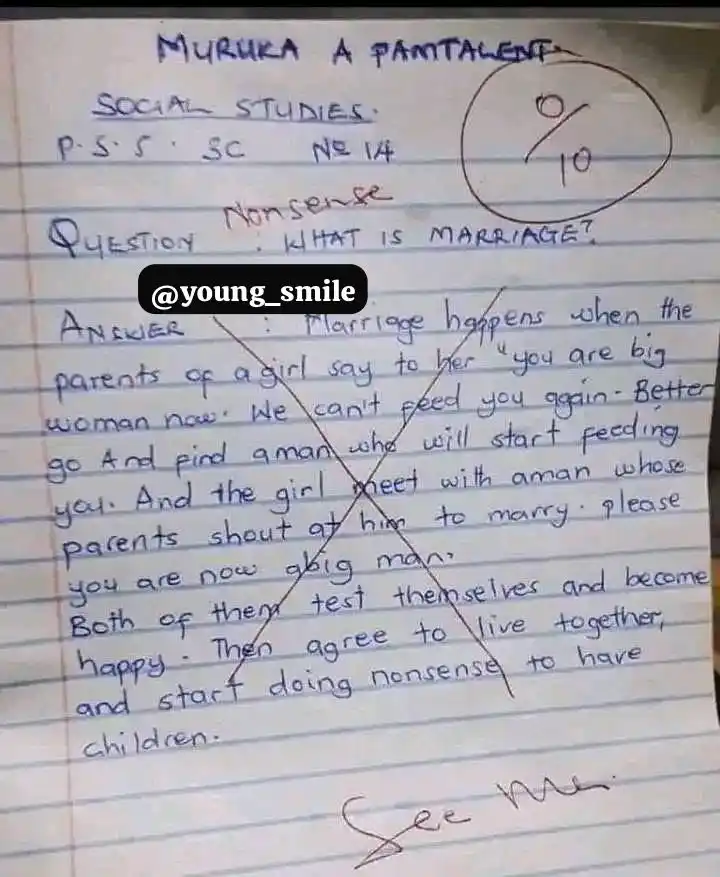 MURUKA A PAMTALENT
SOCIAL STUDIES.
0/10
P.S.S. SC No 14
Nonsense
QUESTION : WHAT IS MARRIAGE?
@young_smile
ANSWER : Marriage happens when the
parents of a girl say to her "you are big
woman now. We can't feed you again. Better
go And find aman who will start feeding
you. And the girl meet with aman whose
parents shout at him to marry. please
you are now abig man.
Both of them test themselves and become
happy. Then agree to live together,
and start doing nonsense to have
children.
See me.